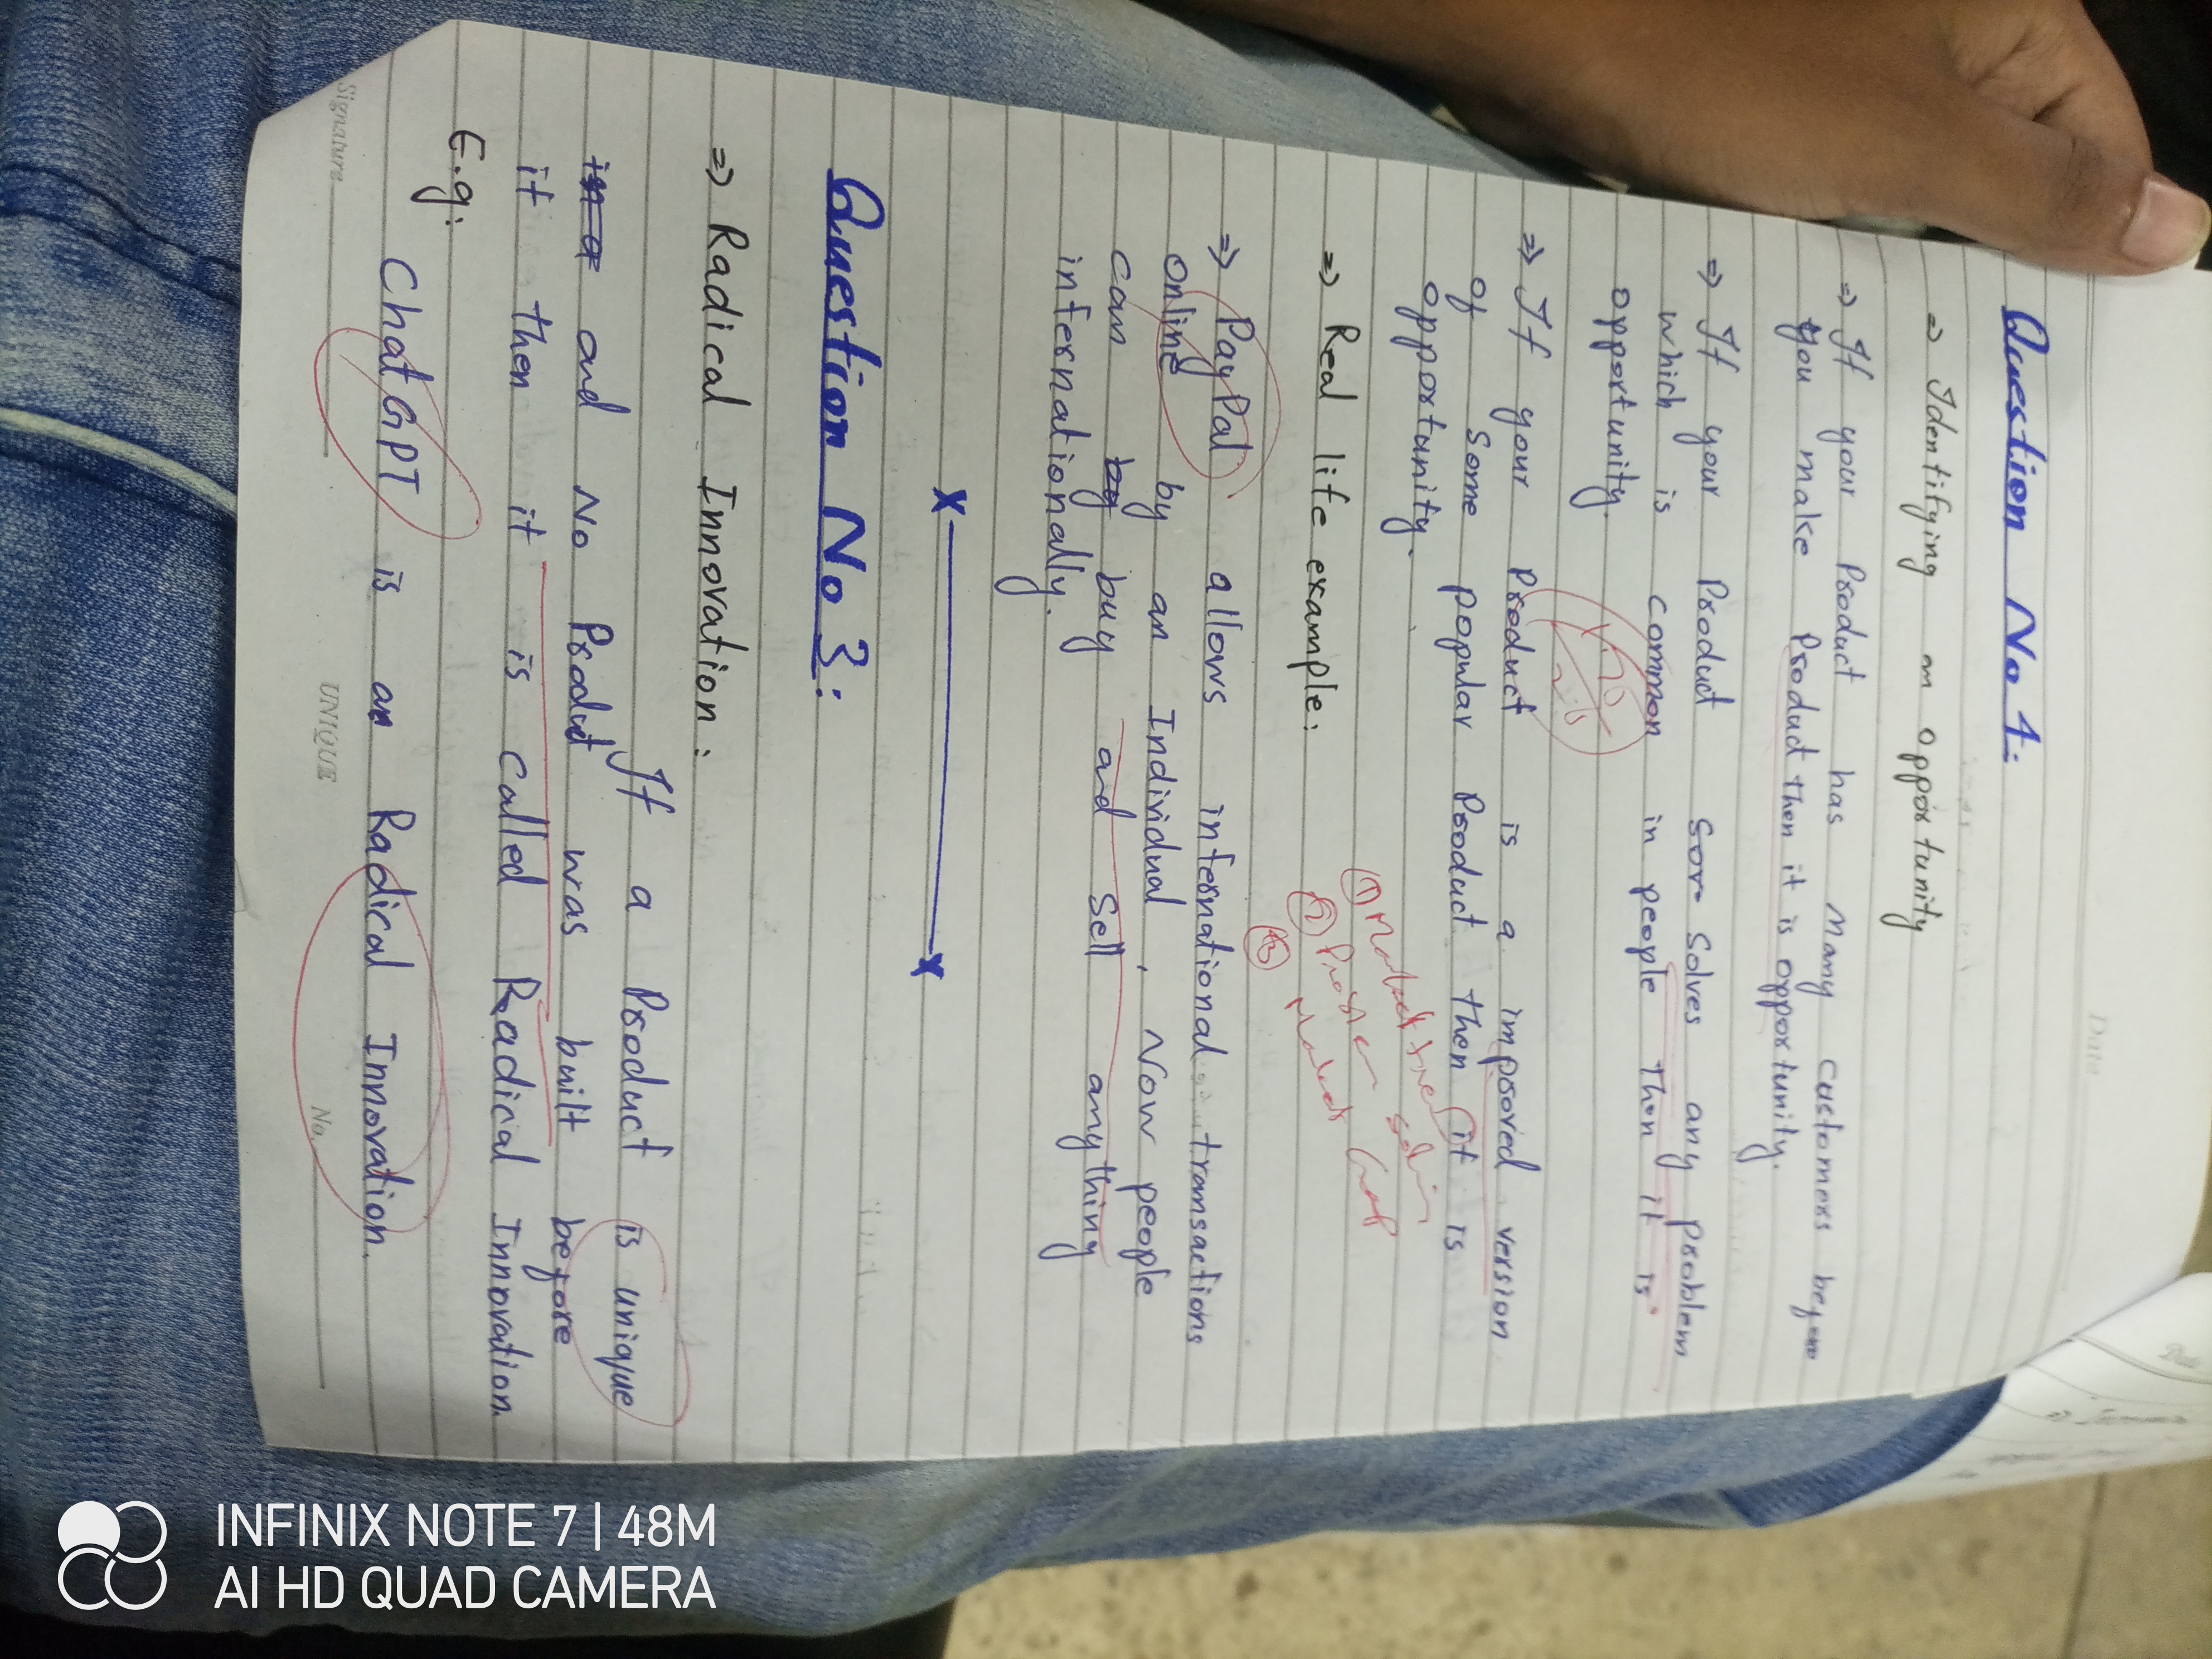 Date
Question No 1:
=> Identifying an opportunity
=> If your Product has many customers before
you make Product then it is opportunity.
=> If your Product Solves any Problem
which is common in people then it is
opportunity.
=> If your Product is a improved version
of some popular Product then it is
opportunity.
=> Real life example:
① Market
② Problem
③ Market
=> PayPal allows international transactions
online by an Individual, Now people
can by buy and sell anything
internationally.
x x
Question No 3:
=> Radical Innovation:
If a Product is unique
and No Product was built before
it then it is called Radical Innovation.
E.g:
ChatGPT is an Radical Innovation.
Signature
UNIQUE
No.
INFINIX NOTE 7 | 48M
AI HD QUAD CAMERA